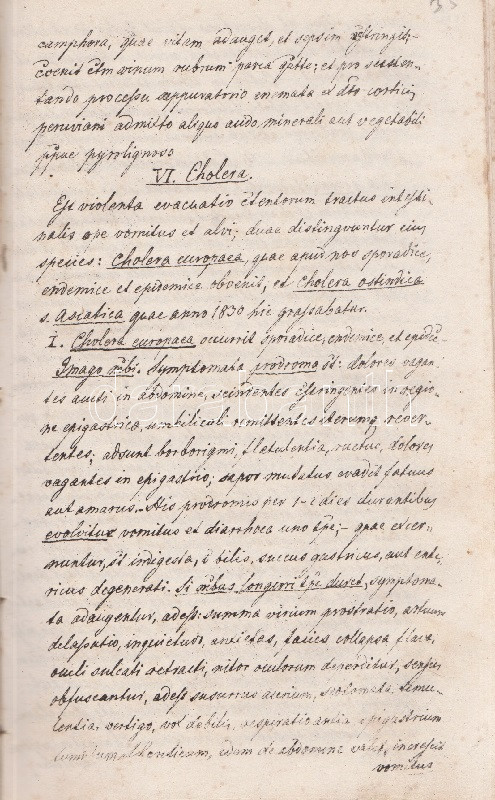 camphora, quae vitam adauget, et sepsim
vinum rubrum et pro susten-
tando processu suppuratorio enemata ex cortici
peruviani admixto aliquo acido minerali aut vegetabili
pyrolignoso
VI. Cholera.
Est violenta evacuatio tractus intesti-
nalis ope vomitus et alvi; duae distinguuntur eius
species: Cholera europaea, quae apud nos sporadice,
endemice et epidemice obvenit, et Cholera ostindica
s. Asiatica quae anno 1830 hic grassabatur.
I. Cholera europaea occurrit sporadice, endemice, et epide-
Imago mbi. Symptomata prodroma st: dolores vagan-
tes acuti in abdomine, scindentes in regio-
ne epigastrica, umbilicali remittentes iterumq rever-
tentes; adsunt borborigmi, flatulentia, ructus, dolores
vagantes in epigastrio; sapor mutatus evadit fatuus
aut amarus. His prodromis per 1-2 dies durantibus
evolvitur vomitus et diarrhoea uno tpe, quae excer-
nuntur, st indigesta, bilis, succus gastricus, aut ente-
ricus degenerati. Si mbus longiori tpe duret, symptoma-
ta adaugentur, adest: summa virium prostratio, artuum
delassatio, inquietudo, anxietas, facies collapsa flava,
oculi sulcati retracti, nitor oculorum deperditur, sensus
obfuscantur, adest susurrus aurium, scotomata, temu-
lentia, vertigo, vox debilis, respiratio antia epigastrium
idem de abdomine valet, increscit
vomitus
darabanth